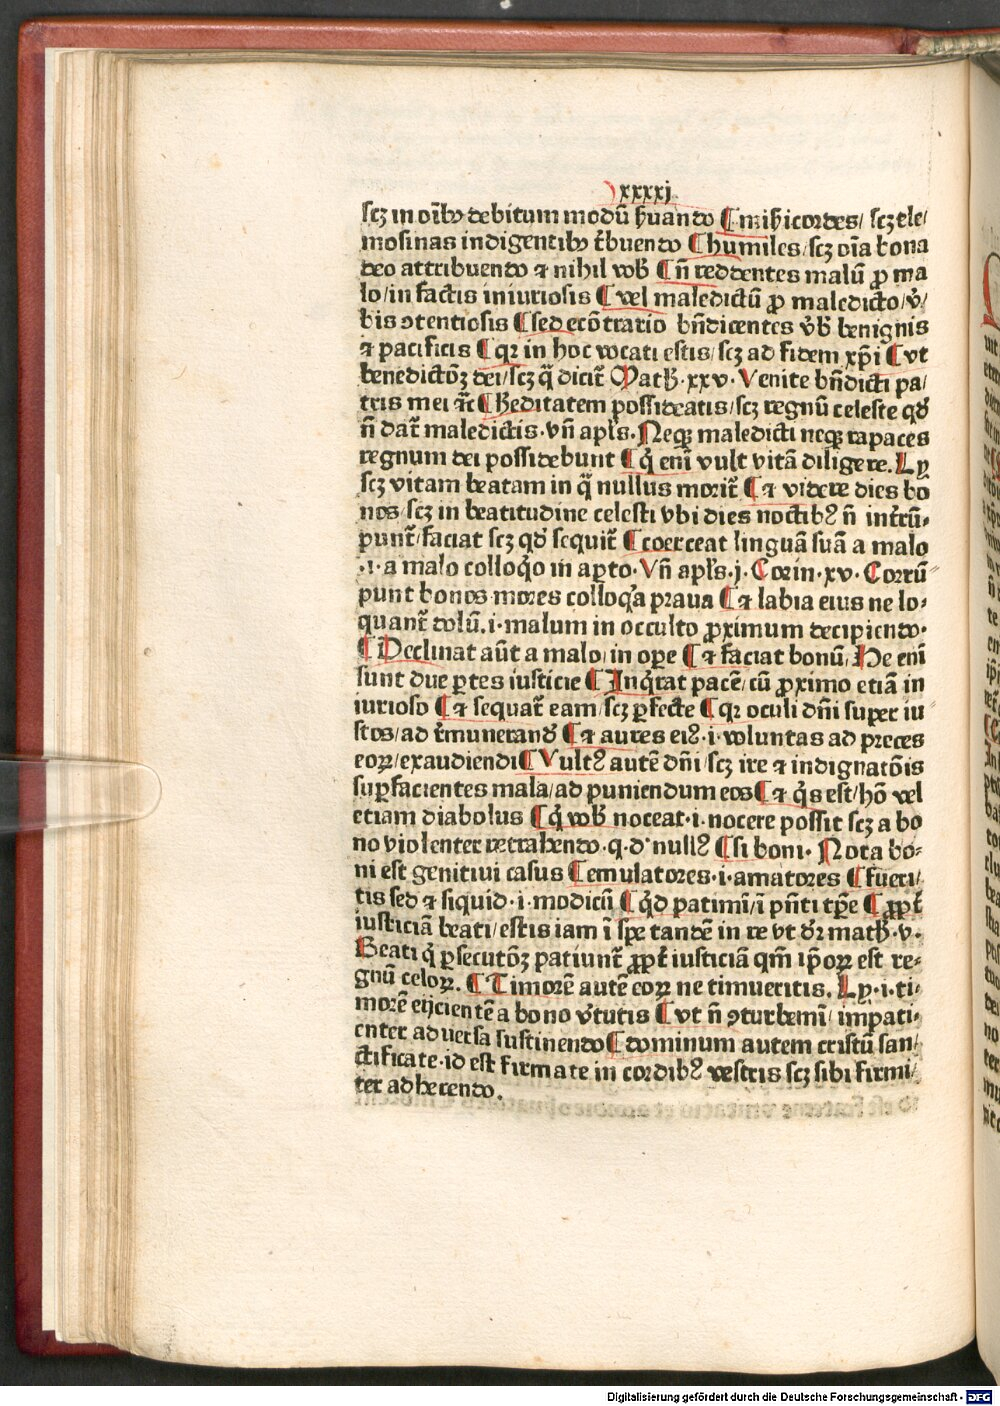 xxxxj
scꝫ in oībꝰ debitum modū ẜuando ¶ miẜicordes/ scꝫ ele/
mosinas indigentibꝰ t̄buendo ¶ humiles/ scꝫ oīa bona
deo attribuendo ⁊ nihil vob̄ ¶ n̄ reddentes malū ꝓ ma
lo/ in factis iniuriosis ¶ vel maledictū ꝓ maledicto/ v̄/
bis ↄtentiosis ¶ sed ecōtrario bn̄dicentes v̄b̄ benignis
⁊ pacificis ¶ qꝛ in hoc vocati estis/ scꝫ ad fidem xp̄i ¶ vt
benedictōꝫ dei/ scꝫ q̄ dicit̄ Math̄·xxv· Venite bn̄dicti pa/
tris mei ⁊c̄ ¶ h̄editatem possideatis/ scꝫ regnū celeste qd̄
n̄ dat̄ maledictis·vn̄ apl̄s. Neqꝫ maledicti neqꝫ rapaces
regnum dei possidebunt ¶ q̇ eni̅ vult vitā diligere. Ly
scꝫ vitam beatam in q̄ nullus morit̄ ¶ ⁊ videre dies bo
nos/ scꝫ in beatitudine celesti vbi dies noctibꝰ n̄ int̄rū-
punt̄/ faciat scꝫ qd̄ sequit̄ ¶ coerceat linguā suā a malo
·i· a malo colloq̇o in aꝑto· Vn̄ apl̄s.j. Corin·xv· Corrū
punt bonos mores colloq̇a praua ¶ ⁊ labia eius ne lo-
quant̄ dolū.i·malum in occulto ꝓximum decipiendo·
¶ Declinat aūt a malo/ in oꝑe ¶ ⁊ faciat bonū/ He enī
sunt due ꝑtes iusticie ¶ Inq̇rat pacē/ cū ꝓximo etiā in
iurioso ¶ ⁊ sequat̄ eam/ scꝫ ꝑfecte ¶ qꝛ oculi dn̄i super iu
stos/ ad r̄munerand̄ ¶ ⁊ aures eiꝰ·i·voluntas ad preces
eoꝝ/ exaudiendi ¶ Vultꝰ autē dn̄i/ scꝫ ire ⁊ indignatōis
suꝑ facientes mala/ ad puniendum eos ¶ ⁊ q̇s est/ hō vel
etiam diabolus ¶ q̇ vob̄ noceat·i·nocere possit scꝫ a bo
no violenter retrahendo·q·d·nullꝰ ¶ si boni· Nota bo-
ni est genitiui casus ¶ emulatores·i·amatores ¶ fueri/
tis sed ⁊ siquid·i·modicū ¶ q̇d patimī/ ī pn̄ti tꝑe ¶ ꝓpt̄
iusticiā beati/ estis iam ī spe tandē in re vt dr̄ math̄·v·
Beati q̇ ꝑsecutōꝫ patiunt̄ ꝓpt̄ iusticiā qm̄ ip̄oꝝ est re-
gnū celoꝝ. ¶ Timorē autē eoꝝ ne timueritis. Ly·i·ti-
morē eijcientē a bono v̄tutis ¶ vt n̄ ↄturbemī/ impati-
enter aduersa sustinendo ¶ dominum autem cristū san/
ctificate·id est firmate in cordibꝰ vestris scꝫ sibi firmi/
ter adherendo.
Digitalisierung gefördert durch die Deutsche Forschungsgemeinschaft - DFG